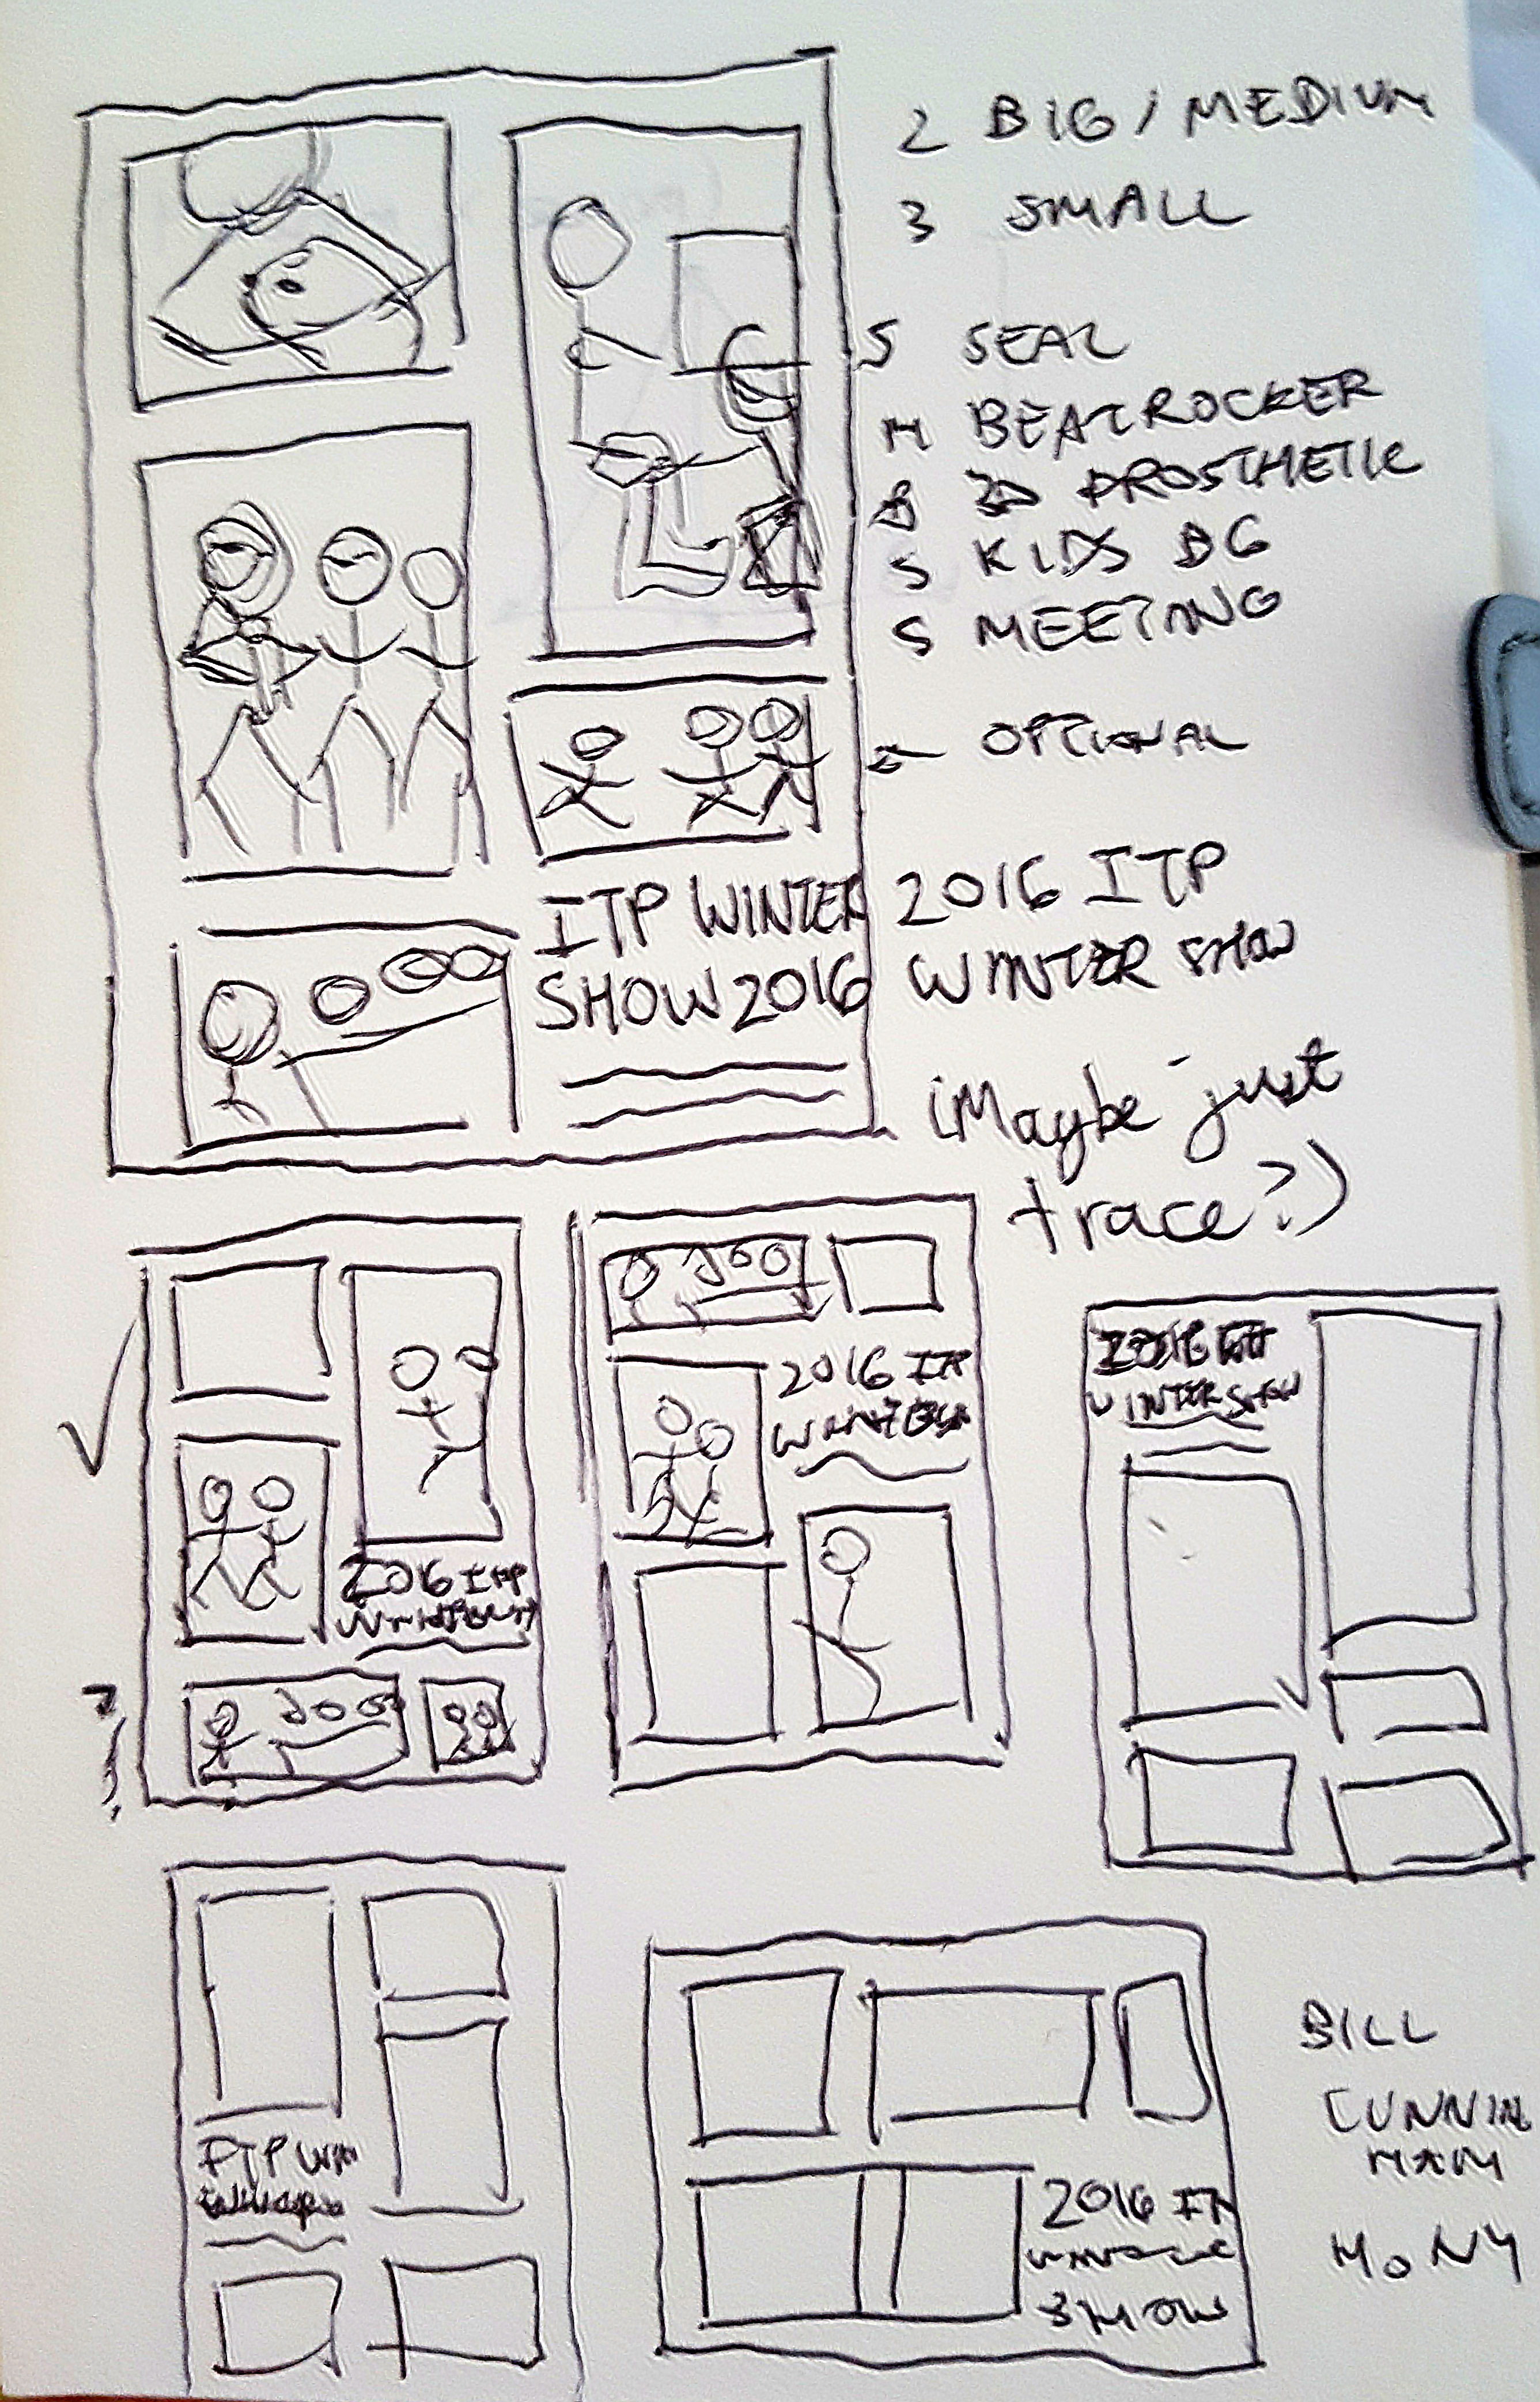 2 BIG / MEDIUM
3 SMALL
S SEAL
M BEATROCKER
B 3D PROSTHETIC
S KIDS BG
S MEETING
← OPTIONAL
ITP WINTER
SHOW 2016
2016 ITP
WINTER SHOW
(Maybe just
trace?)
2016 ITP
2016 ITP
2016
WINTER SHOW
ITP WIN
2016 ITP
SHOW
BILL
CUNNING
HAM
MONY
?